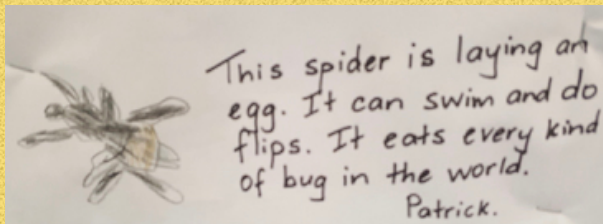 This spider is laying an
egg. It can swim and do
flips. It eats every kind
of bug in the world.
Patrick.